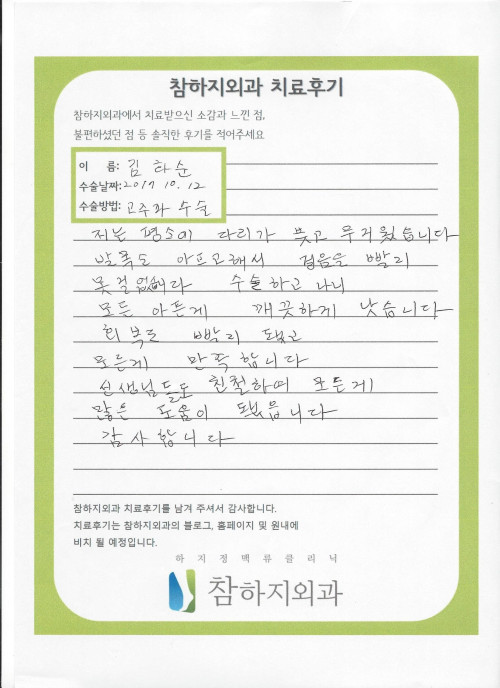 참하지외과 치료후기
참하지외과에서 치료받으신 소감과 느낀 점,
불편하셨던 점 등 솔직한 후기를 적어주세요
이 름: 김 하순
수술날짜: 2017 10. 12
수술방법: 고주파 수술
저는 평소에 다리가 붓고 무거웠습니다
발목도 아프고해서 걸음을 빨리
못걸었습니다 수술하고 나니
모든 아픈게 깨끗하게 낫습니다
회복도 빨리 됐고
모든게 만족합니다
선생님들도 친철하며 모든게
많은 도움이 됐읍니다
감사합니다
참하지외과 치료후기를 남겨 주셔서 감사합니다.
치료후기는 참하지외과의 블로그, 홈페이지 및 원내에
비치 될 예정입니다.
하지정맥류클리닉
참하지외과